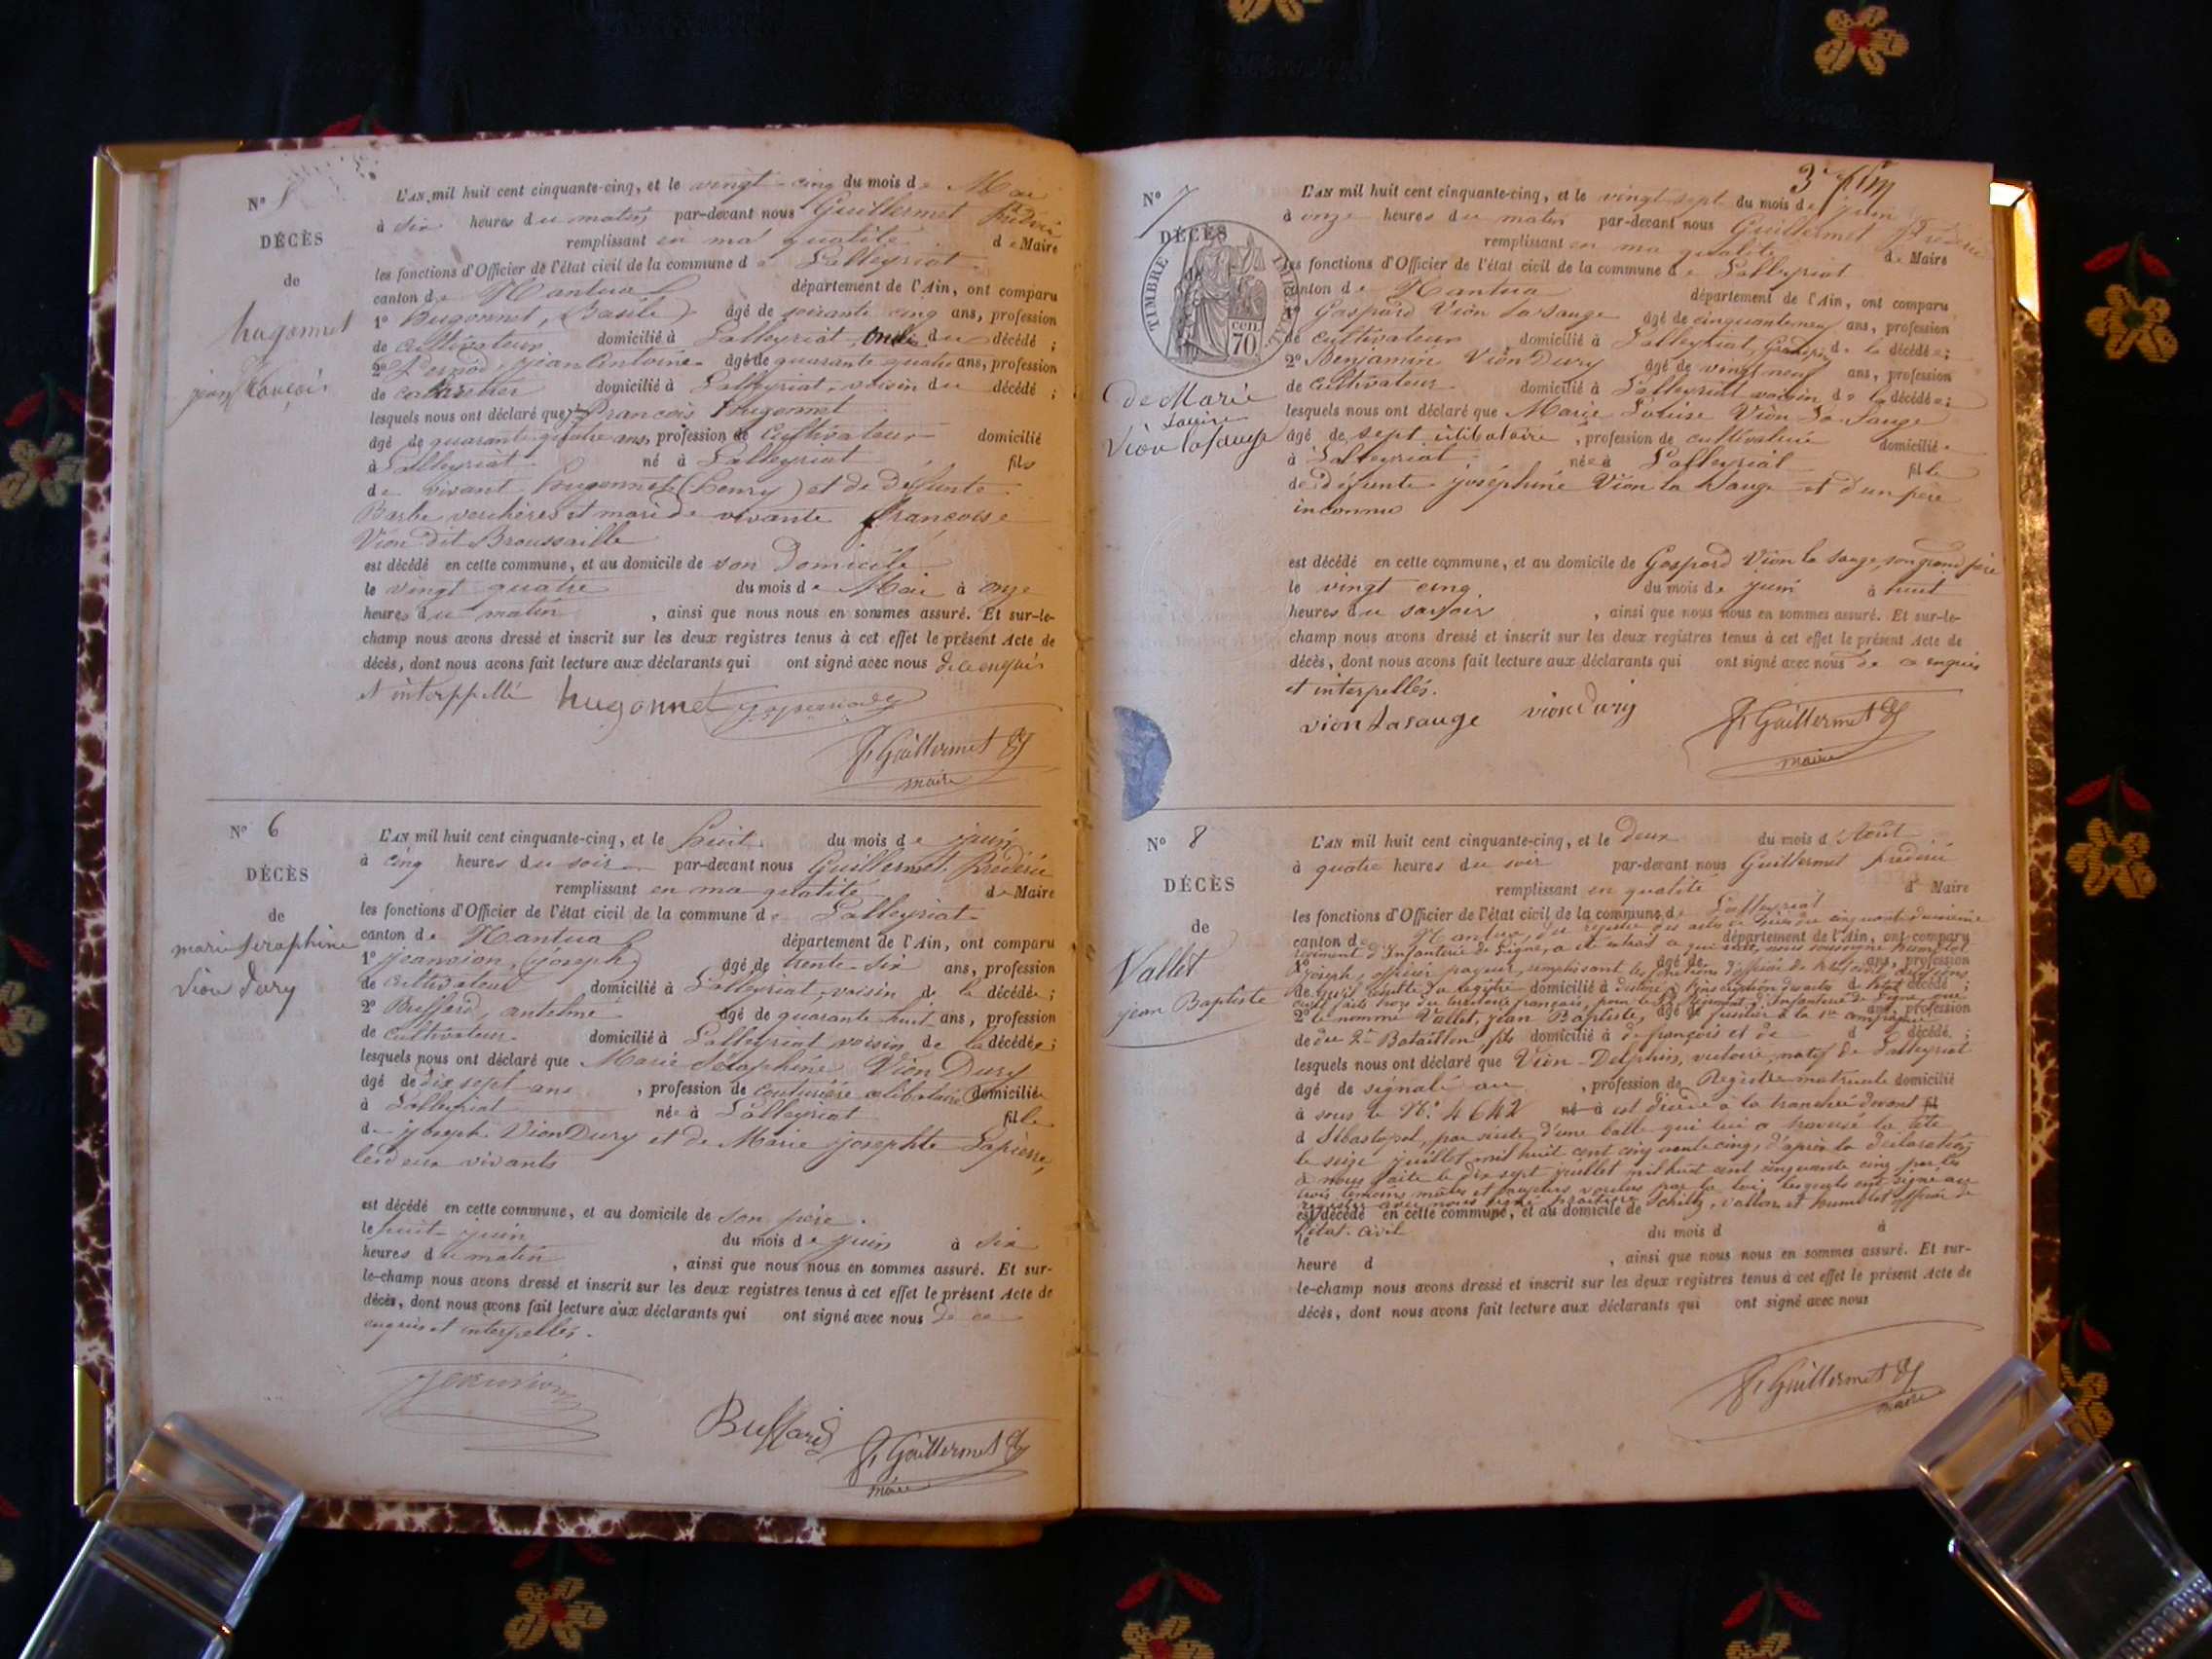 N° 5
DÉCÈS
de
hugonnet
jean françois
L'AN mil huit cent cinquante-cinq, et le vingt-cinq du mois de Mai
à six heures du matin par-devant nous Guillermet frédéric
remplissant en ma qualité de Maire
les fonctions d'Officier de l'état civil de la commune de Lalleyriat
canton de Nantua département de l'Ain, ont comparu
1° Hugonnet, (Basile) âgé de soixante cinq ans, profession
de cultivateur domicilié à Lalleyriat, oncle du décédé ;
2° jean antoine âgé de quarante quatre ans, profession
de domicilié à Lalleyriat, voisin du décédé ;
lesquels nous ont déclaré que françois hugonnet
âgé de quarante quatre ans, profession de cultivateur domicilié
à Lalleyriat né à Lalleyriat fils
de vivant hugonnet (henry) et de défunte
Barbe verchères et marié de vivante françoise
Vion dit Broussaille
est décédé en cette commune, et au domicile de son domicile
le vingt quatre du mois de Mai à onze
heures du matin , ainsi que nous nous en sommes assuré. Et sur-le-
champ nous avons dressé et inscrit sur les deux registres tenus à cet effet le présent Acte de
décès, dont nous avons fait lecture aux déclarants qui ont signé avec nous de ce enquis
et interppellé hugonnet
f. Guillermet
maire
N° 6
DÉCÈS
de
marie seraphine
Vion Dury
L'AN mil huit cent cinquante-cinq, et le huit du mois de juin
à cinq heures du soir par-devant nous Guillermet frédéric
remplissant en ma qualité de Maire
les fonctions d'Officier de l'état civil de la commune de Lalleyriat
canton de Nantua département de l'Ain, ont comparu
1° jeanvion, (joseph) âgé de trente-six ans, profession
de cultivateur domicilié à Lalleyriat, voisin de la décédée ;
2° Buffard, antelme âgé de quarante huit ans, profession
de cultivateur domicilié à Lalleyriat voisin de la décédée ;
lesquels nous ont déclaré que Marie Séraphine Vion Dury
âgé de dix sept ans , profession de couturière célibataire domiciliée
à Lalleyriat née à Lalleyriat fille
de joseph Vion Dury et de Marie josephte Lapierre,
les deux vivants
est décédé en cette commune, et au domicile de son père.
le huit juin du mois de juin à six
heures du matin , ainsi que nous nous en sommes assuré. Et sur-
le-champ nous avons dressé et inscrit sur les deux registres tenus à cet effet le présent Acte de
décès, dont nous avons fait lecture aux déclarants qui ont signé avec nous de ce
enquis et interpellés.
Jeanvion
Buffard f. Guillermet
maire
3e f
N° 7
DÉCÈS
de
TIMBRE IMPERIAL
CEN. 70
de Marie
Louise
Vion lasauge
L'AN mil huit cent cinquante-cinq, et le vingt sept du mois de juin
à onze heures du matin par-devant nous Guillermet frédéric
remplissant en ma qualité de Maire
les fonctions d'Officier de l'état civil de la commune de Lalleyriat
canton de Nantua département de l'Ain, ont comparu
Gaspard Vion lasauge âgé de cinquante neuf ans, profession
de cultivateur domicilié à Lalleyriat, Grandpère de la décédée ;
2° Benjamin Vion Dury âgé de vingt neuf ans, profession
de cultivateur domicilié à Lalleyriat voisin de la décédée ;
lesquels nous ont déclaré que Marie Louise Vion La Sauge
âgé de sept célibataire , profession de cultivateur domiciliée
à Lalleyriat née à Lalleyriat fille
de défunte joséphine Vion la Sauge et d'un père
inconnu
est décédé en cette commune, et au domicile de Gaspard Vion la sauge, son grand père
le vingt cinq du mois de juin à huit
heures du soir , ainsi que nous nous en sommes assuré. Et sur-le-
champ nous avons dressé et inscrit sur les deux registres tenus à cet effet le présent Acte de
décès, dont nous avons fait lecture aux déclarants qui ont signé avec nous de ce enquis
et interpellés.
vion Lasauge vion dury f. Guillermet
maire
N° 8
DÉCÈS
de
Vallet
jean Baptiste
L'AN mil huit cent cinquante-cinq, et le deux du mois d'Août
à quatre heures du soir par-devant nous Guillermet frédéric
remplissant en qualité d Maire
les fonctions d'Officier de l'état civil de la commune de Lalleyriat
canton de Nantua, du registre des actes de décès du cinquante deuxième département de l'Ain, ont comparu
régiment d'Infanterie de Ligne, a été extrait ce qui suit, nous soussigné humblot
1° joseph, officier payeur, remplissant les fonctions d'officier de l'état civil âgé de ans, profession
de qu'il résulte du registre domicilié à destiné à l'inscription des actes de l'état d décédé ;
civil faits hors du territoire français, pour le 52 Régiment d'Infanterie de Ligne que
2° le nommé Vallet, jean Baptiste, âgé de fusilier à la 1re compagnie ans, profession
de du 2e Bataillon fils domicilié à de françois et de d décédé ;
lesquels nous ont déclaré que Vion-Delphin, victoire, natif de Lalleyriat
âgé de signalé au , profession de Registre matricule domicilié
à sous le N° 4642 né à est décédé à la tranchée devant fil
d Sébastopol, par suite d'une balle qui lui a traversé la tête
le seize juillet mil huit cent cinquante cinq, d'après la déclaration
à nous faite le dix sept juillet mil huit cent cinquante cinq par les
trois témoins mâles et majeurs voulus par la loi, lesquels ont signé au
registre avec nous signé Schiltz, vallon et humblot officier de
est décédé en cette commune, et au domicile de
l'état-civil
le du mois d à
heure d , ainsi que nous nous en sommes assuré. Et sur-
le-champ nous avons dressé et inscrit sur les deux registres tenus à cet effet le présent Acte de
décès, dont nous avons fait lecture aux déclarants qui ont signé avec nous
f. Guillermet
maire